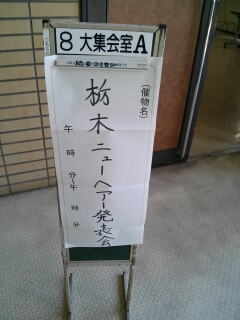 8 大集会室A
(催物名)
栃木ニューヘアー発表会
午 時 分~午 時 分